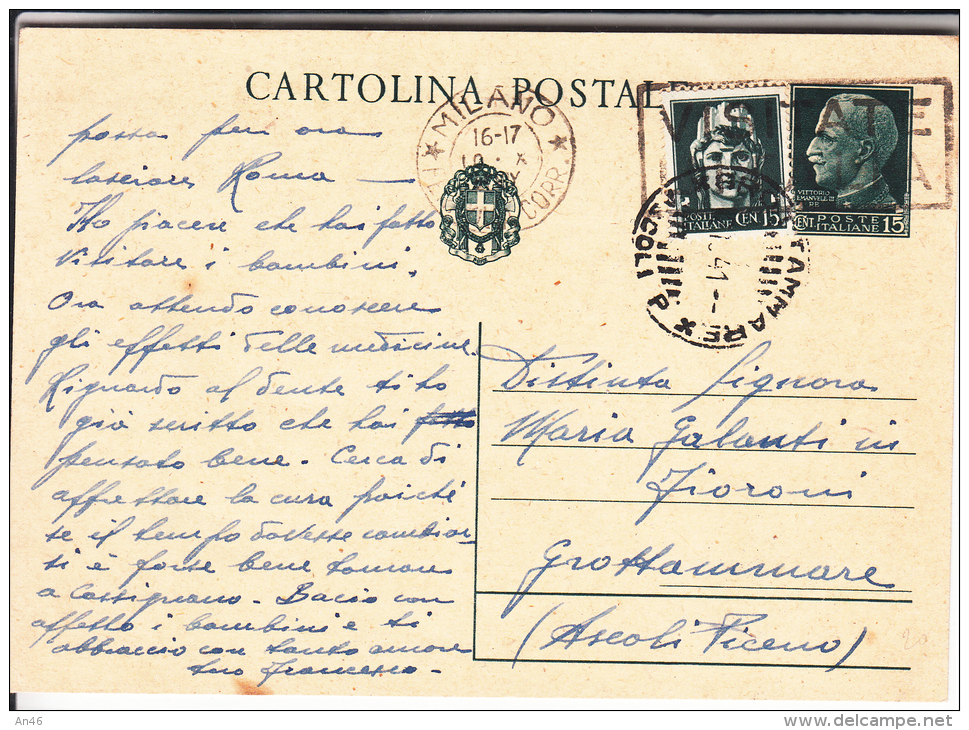 CARTOLINA POSTALE
MILANO
16-17
CORR.
VISITATE
VITTORIO
EMANUELE III
RE
POSTE
ITALIANE
CEN 15
CENT. POSTE 15
ITALIANE
TAMMARE
41
COLI P
possa per ora
lasciare Roma —
Ho piacere che hai fatto
visitare i bambini.
Ora attendo conoscere
gli effetti delle medicine.
Riguardo al dente ti ho
già scritto che hai fatto
pensato bene. Cerca di
affrettare la cura poiché
se il tempo dovesse cambiar-
si è forse bene tornare
a Cossignano. Bacio con
affetto i bambini e ti
abbraccio con tanto amore
tuo Francesco -
Distinta Signora
Maria Galanti in
Fioroni
Grottammare
(Ascoli Piceno)
An46
www.delcampe.net